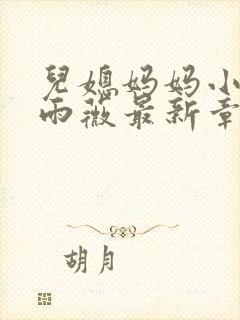 兒媳妈妈小
雨薇最新章
胡月